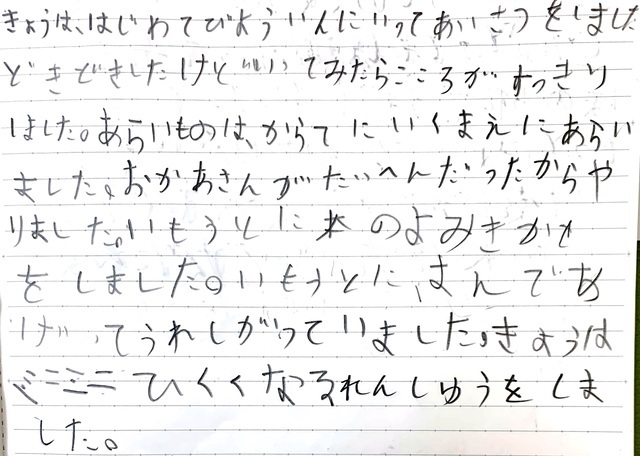 きょうは、はじめてびよういんにいってあいさつをしました
どきどきしたけどいってみたらこころがすっきり
しました。あらいものは、からてにいくまえにあらい
ました。おかあさんがたいへんだったからや
りました。いもうとに本のよみきかせ
をしました。いもうとに、よんであ
げてうれしがっていました。きょうは
ミニミニひくくなるれんしゅうをしま
した。